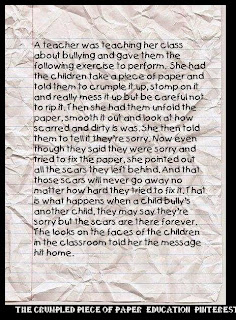 A teacher was teaching her class
about bullying and gave them the
following exercise to perform. She had
the children take a piece of paper and
told them to crumple it up, stomp on it
and really mess it up but be careful not
to rip it. Then she had them unfold the
paper, smooth it out and look at how
scarred and dirty is was. She then told
them to tell it they're sorry. Now even
though they said they were sorry and
tried to fix the paper, she pointed out
all the scars they left behind. And that
those scars will never go away no
matter how hard they tried to fix it. That
is what happens when a child bully's
another child, they may say they're
sorry but the scars are there forever.
The looks on the faces of the children
in the classroom told her the message
hit home.
THE CRUMPLED PIECE OF PAPER EDUCATION PINTEREST